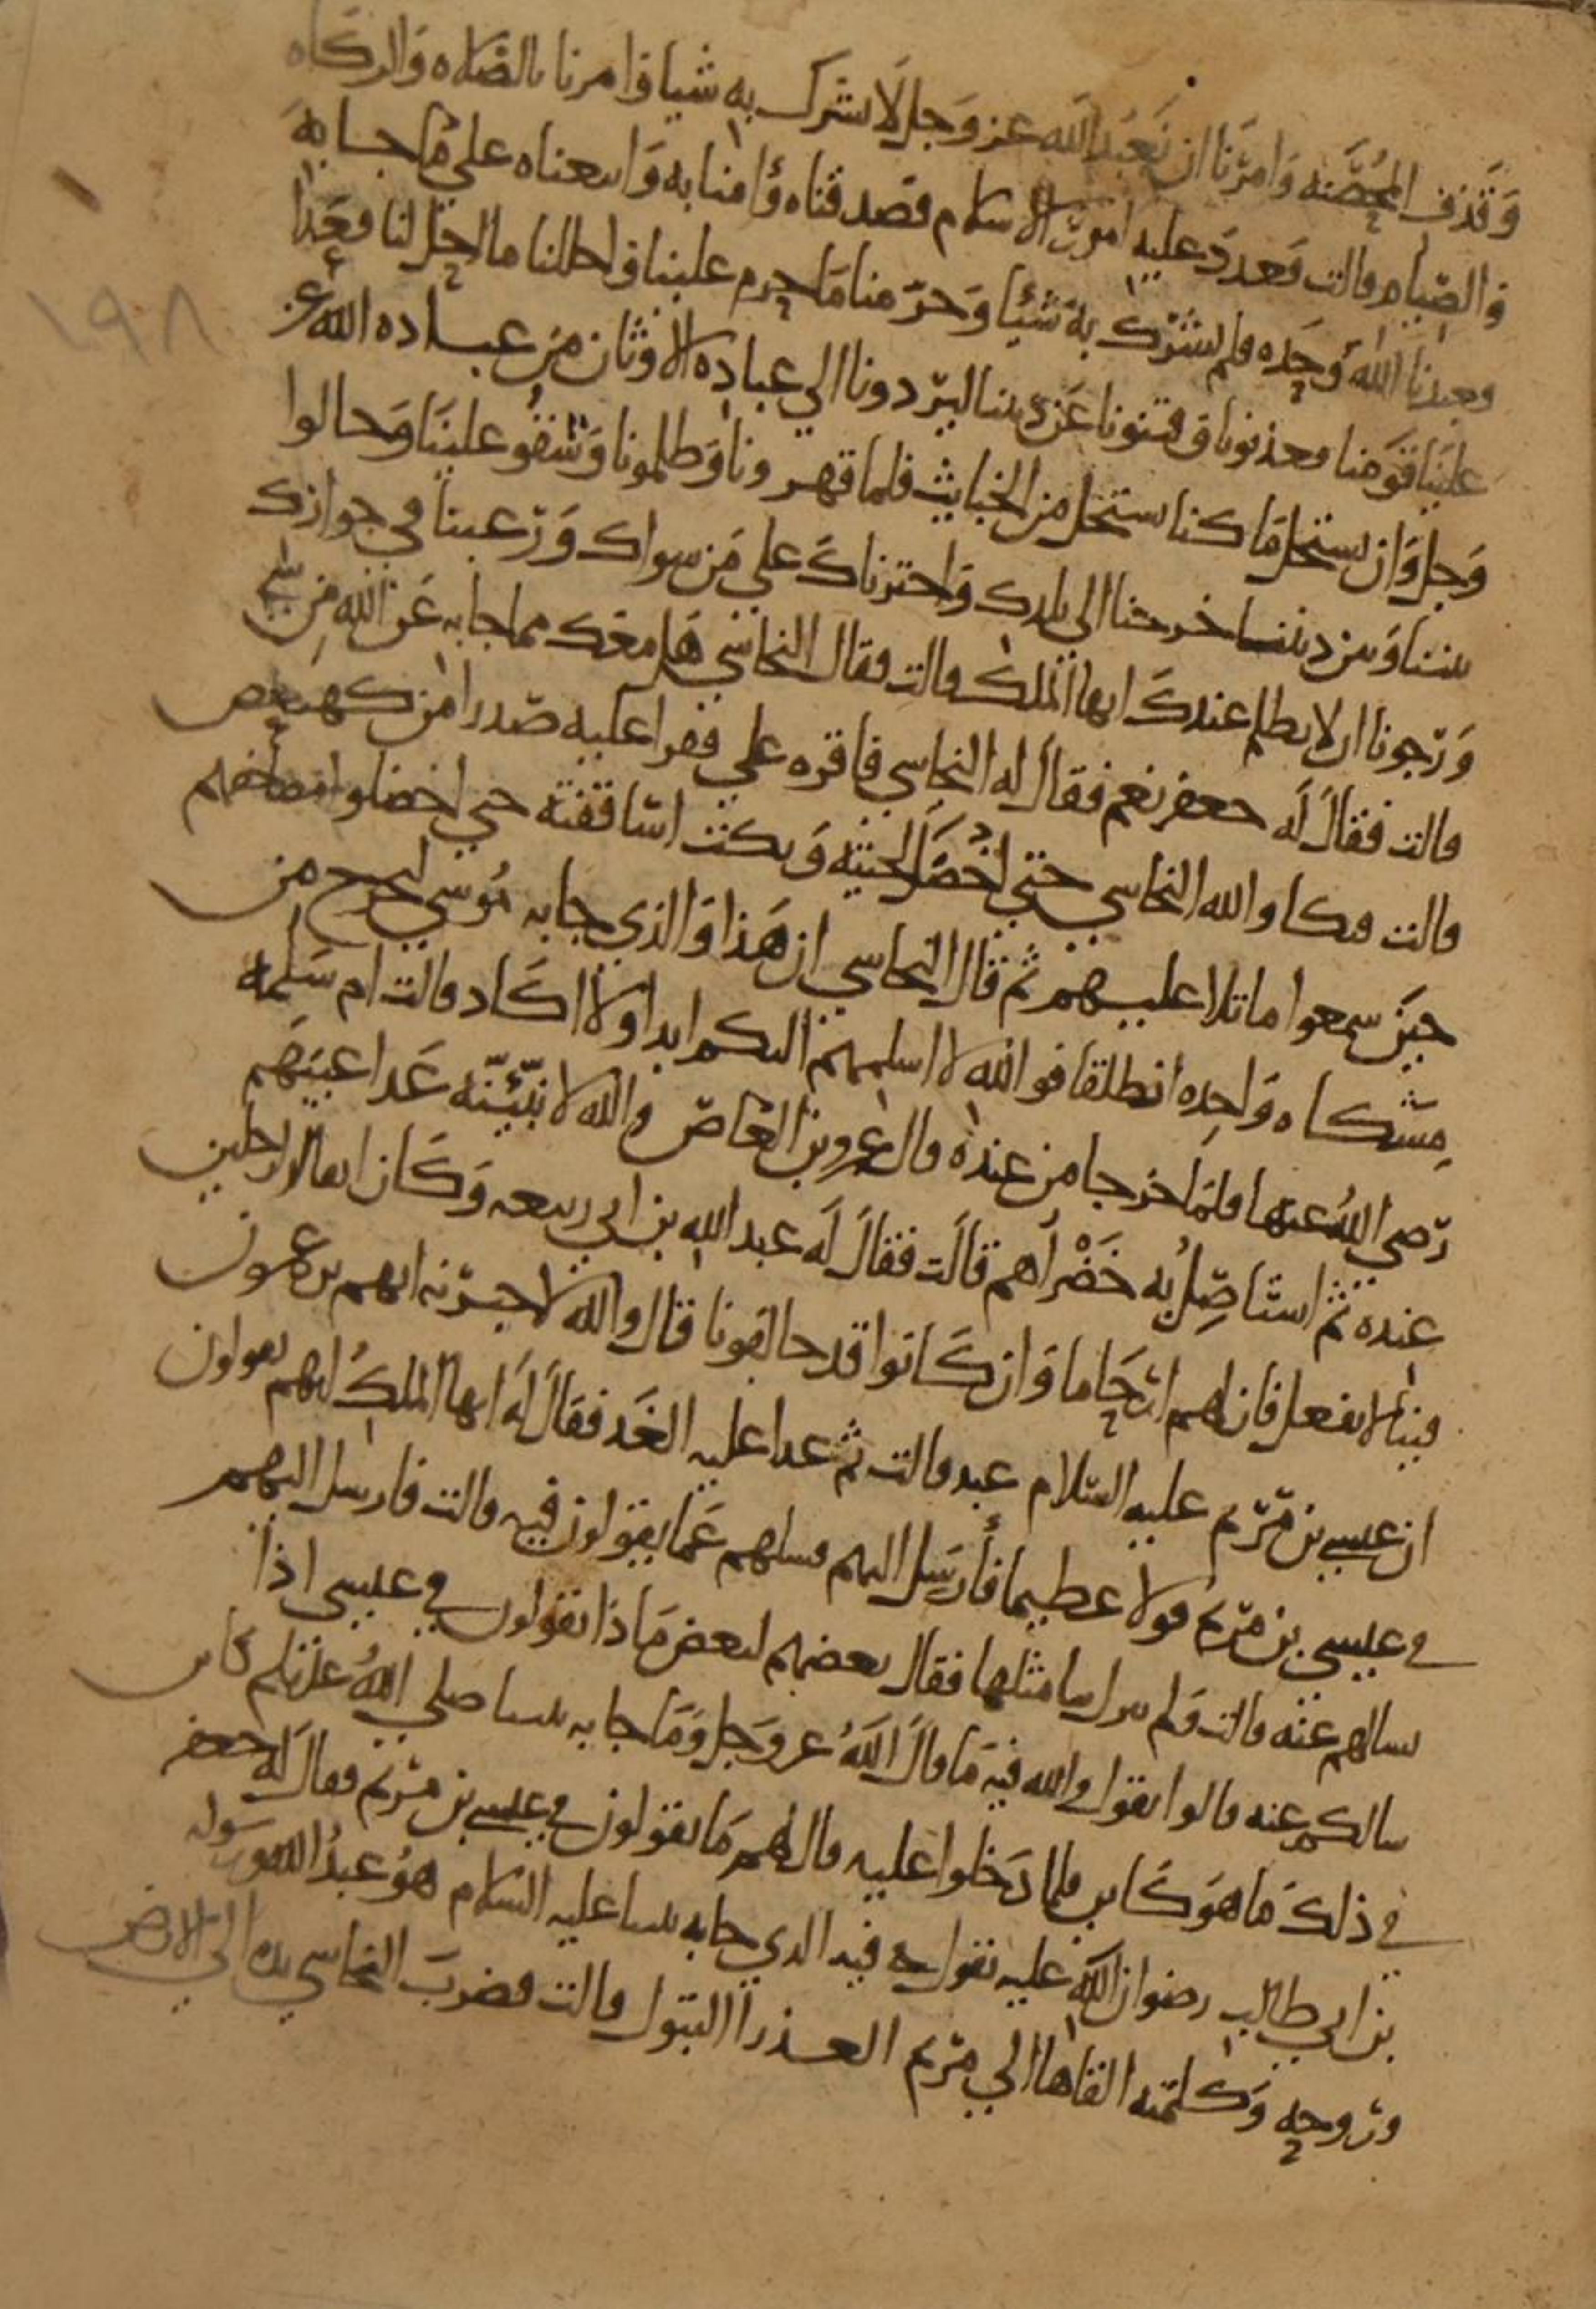 وقذف المحصنه وامرنا ان نعبد الله عز وجل لا نشرك به شيا وامرنا بالصلاه والزكاه
والصيام قالت فعدد عليه امور الاسلام فصدقناه وامنا به واتبعناه على ما جا به
فعبدنا الله وحده فلم نشرك به شيئا وحرمنا ما حرم علينا واحللنا ما احل لنا فعدا
علينا قومنا فعذبونا وفتنونا عن ديننا ليردونا الي عباده الاوثان من عباده الله عز
وجل وان نستحل ما كنا نستحل من الخبايث فلما قهرونا وظلمونا وشقو علينا وحالوا
بيننا وبين ديننا خرجنا الي بلدك واخترناك علي من سواك ورغبنا في جوارك
ورجونا ان لا نظلم عندك ايها الملك قالت فقال النجاشي هل معك مما جا به عن الله من شي
قالت فقال له جعفر نعم فقال له النجاشي فاقره علي فقرا عليه صدرا من كهيعص
قالت فبكا والله النجاشي حتي اخضل لحيته وبكت اساقفته حتي اخضلوا مصاحفهم
حين سمعوا ما تلا عليهم ثم قال النجاشي ان هذا والذي جا به موسي ليخرج من
مشكاه واحده انطلقا فوالله لا اسلمهم اليكم ابدا ولا اكاد قالت ام سلمه
رضي الله عنها فلما خرجا من عنده قال عمرو بن العاص والله لانبئنه غدا عيبهم
عنده ثم استاصل به خضراهم قالت فقال له عبد الله بن ابي ربيعه وكان اتقا الرجلين
فينا لا نفعل فان لهم ارحاما وان كانوا قد خالفونا قال والله لاخبرنه انهم يزعمون
ان عيسي بن مريم عليه السلام عبد قالت ثم غدا عليه الغد فقال له ايها الملك انهم يقولون
في عيسي بن مريم قولا عظيما فأرسل اليهم فسلهم عما يقولون فيه قالت فارسل اليهم
يسالهم عنه قالت ولم ينزل بنا مثلها فقال بعضهم لبعض ماذا تقولون في عيسي اذا
سالكم عنه قالوا نقول والله فيه ما قال الله عز وجل وما جا به نبينا صلي الله عليه وسلم كاين
في ذلك ما هو كاين فلما دخلوا عليه قال لهم ما تقولون في عيسي بن مريم فقال له جعفر
بن ابي طالب رضوان الله عليه نقول فيه الذي جا به نبينا عليه السلام هو عبد الله ورسوله
وروحه وكلمته القاها الي مريم العذرا البتول قالت فضرب النجاشي يده الي الارض
١٩٨